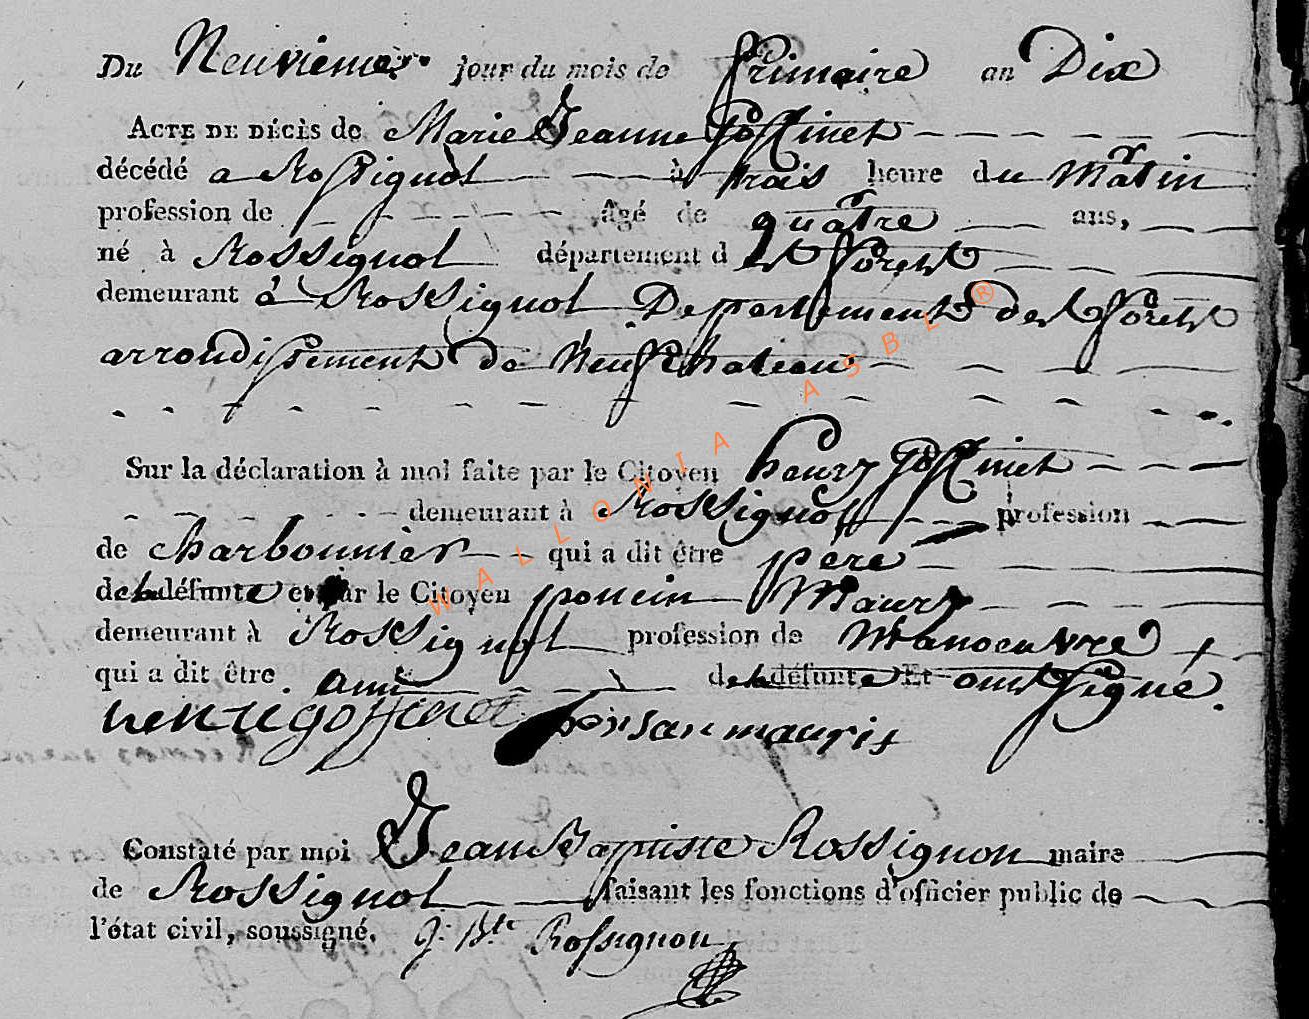 Du Neuvieme jour du mois de frimaire an Dix
ACTE DE DÉCÈS de Marie Jeanne Goffinet
décédé a Rossignol à trois heure du Matin
profession de âgé de quatre ans,
né à Rossignol département des forets
demeurant à Rossignol Departement des forets
arrondissement de Neufchateau
Sur la déclaration à moi faite par le Citoyen henry Goffinet
demeurant à Rossignol profession
de charbonnier qui a dit être pere
de la défunte et par le Citoyen poncin Maury
demeurant à Rossignol profession de Manoeuvre
qui a dit être ami de la défunte Et ont signé.
henri goffinet
Constaté par moi Jean Baptiste Rossignon maire
de Rossignol faisant les fonctions d'officier public de
l'état civil, soussigné. J. Bte Rossignon
WALLONIA ASBL ®